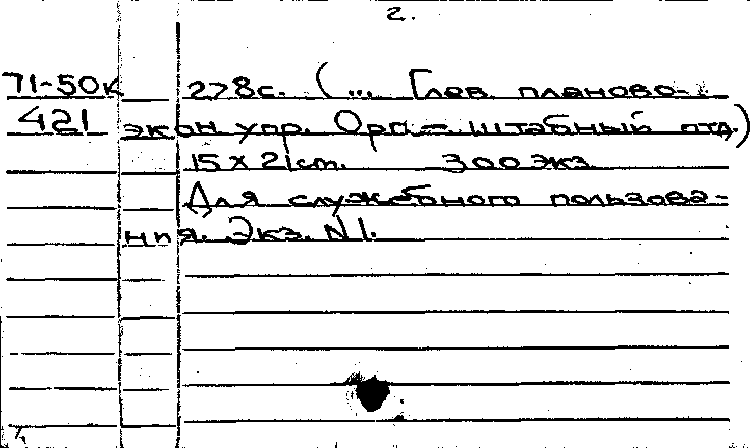 2.
71-50к 278с. (... Глав. планово-
421 экон упр. Орг.-штабный отд.)
15 x 21 cm. 300 экз.
Для служебного пользова-
ния. Экз. N1.